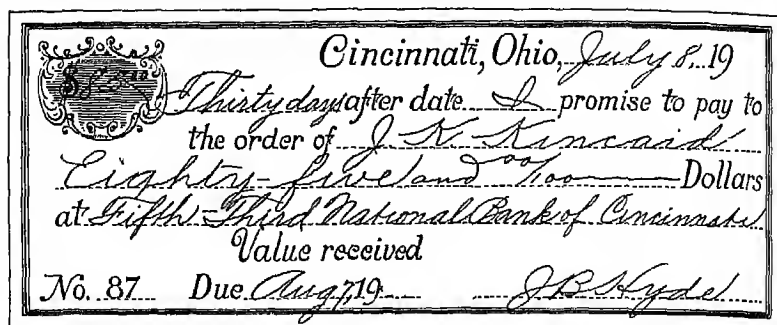 Cincinnati, Ohio, July 8, 19
$85 00
Thirty days after date I promise to pay to
the order of J. K. Kincaid
Eighty-five and 00/100 Dollars
at Fifth-Third National Bank of Cincinnati
Value received
No. 87 Due Aug 7, 19 J B Hyde